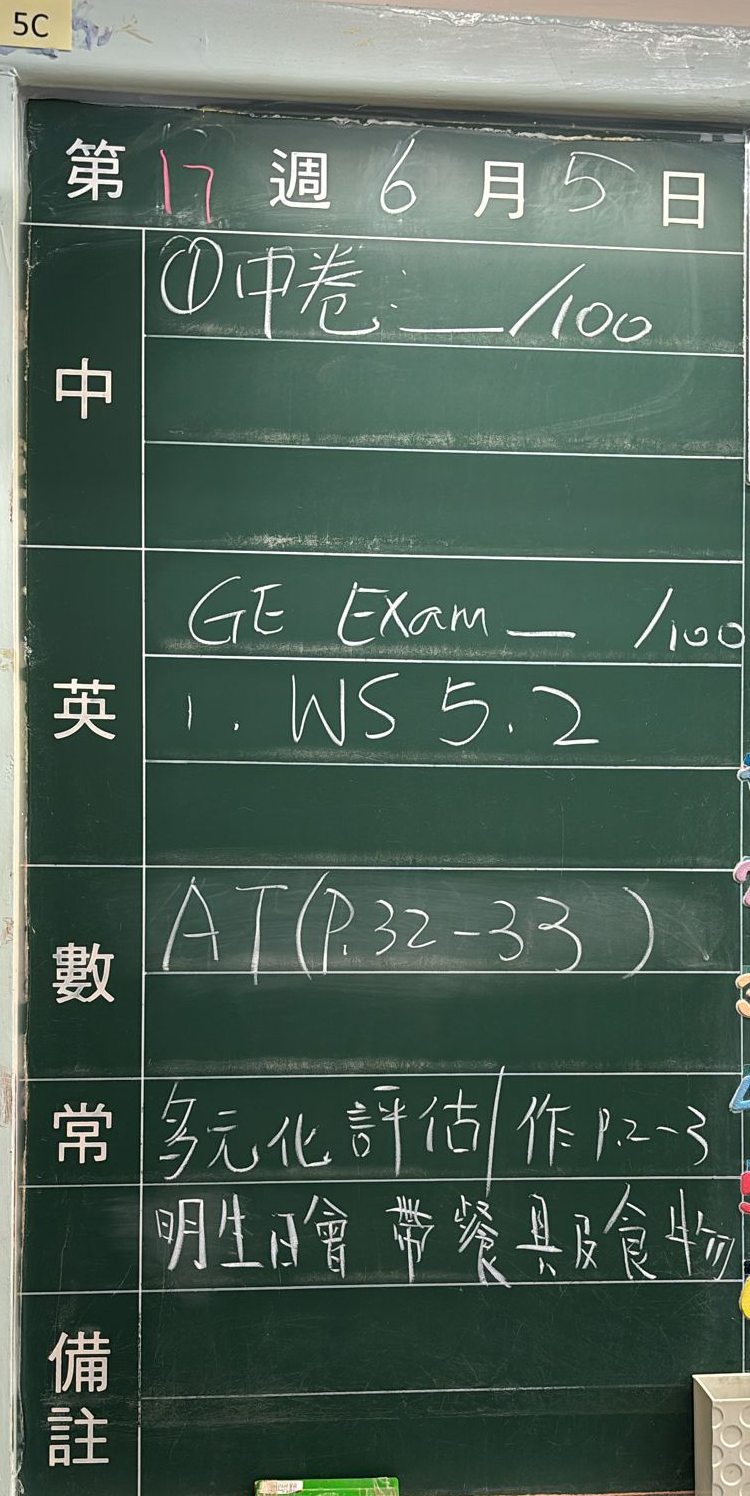 5C
第 17 週 6 月 5 日
中
①中卷:__/100
英
GE Exam __ /100
1. WS 5.2
數
AT(P.32-33)
常
多元化評估/作 P.2-3
明生日會 帶餐具及食物
備註